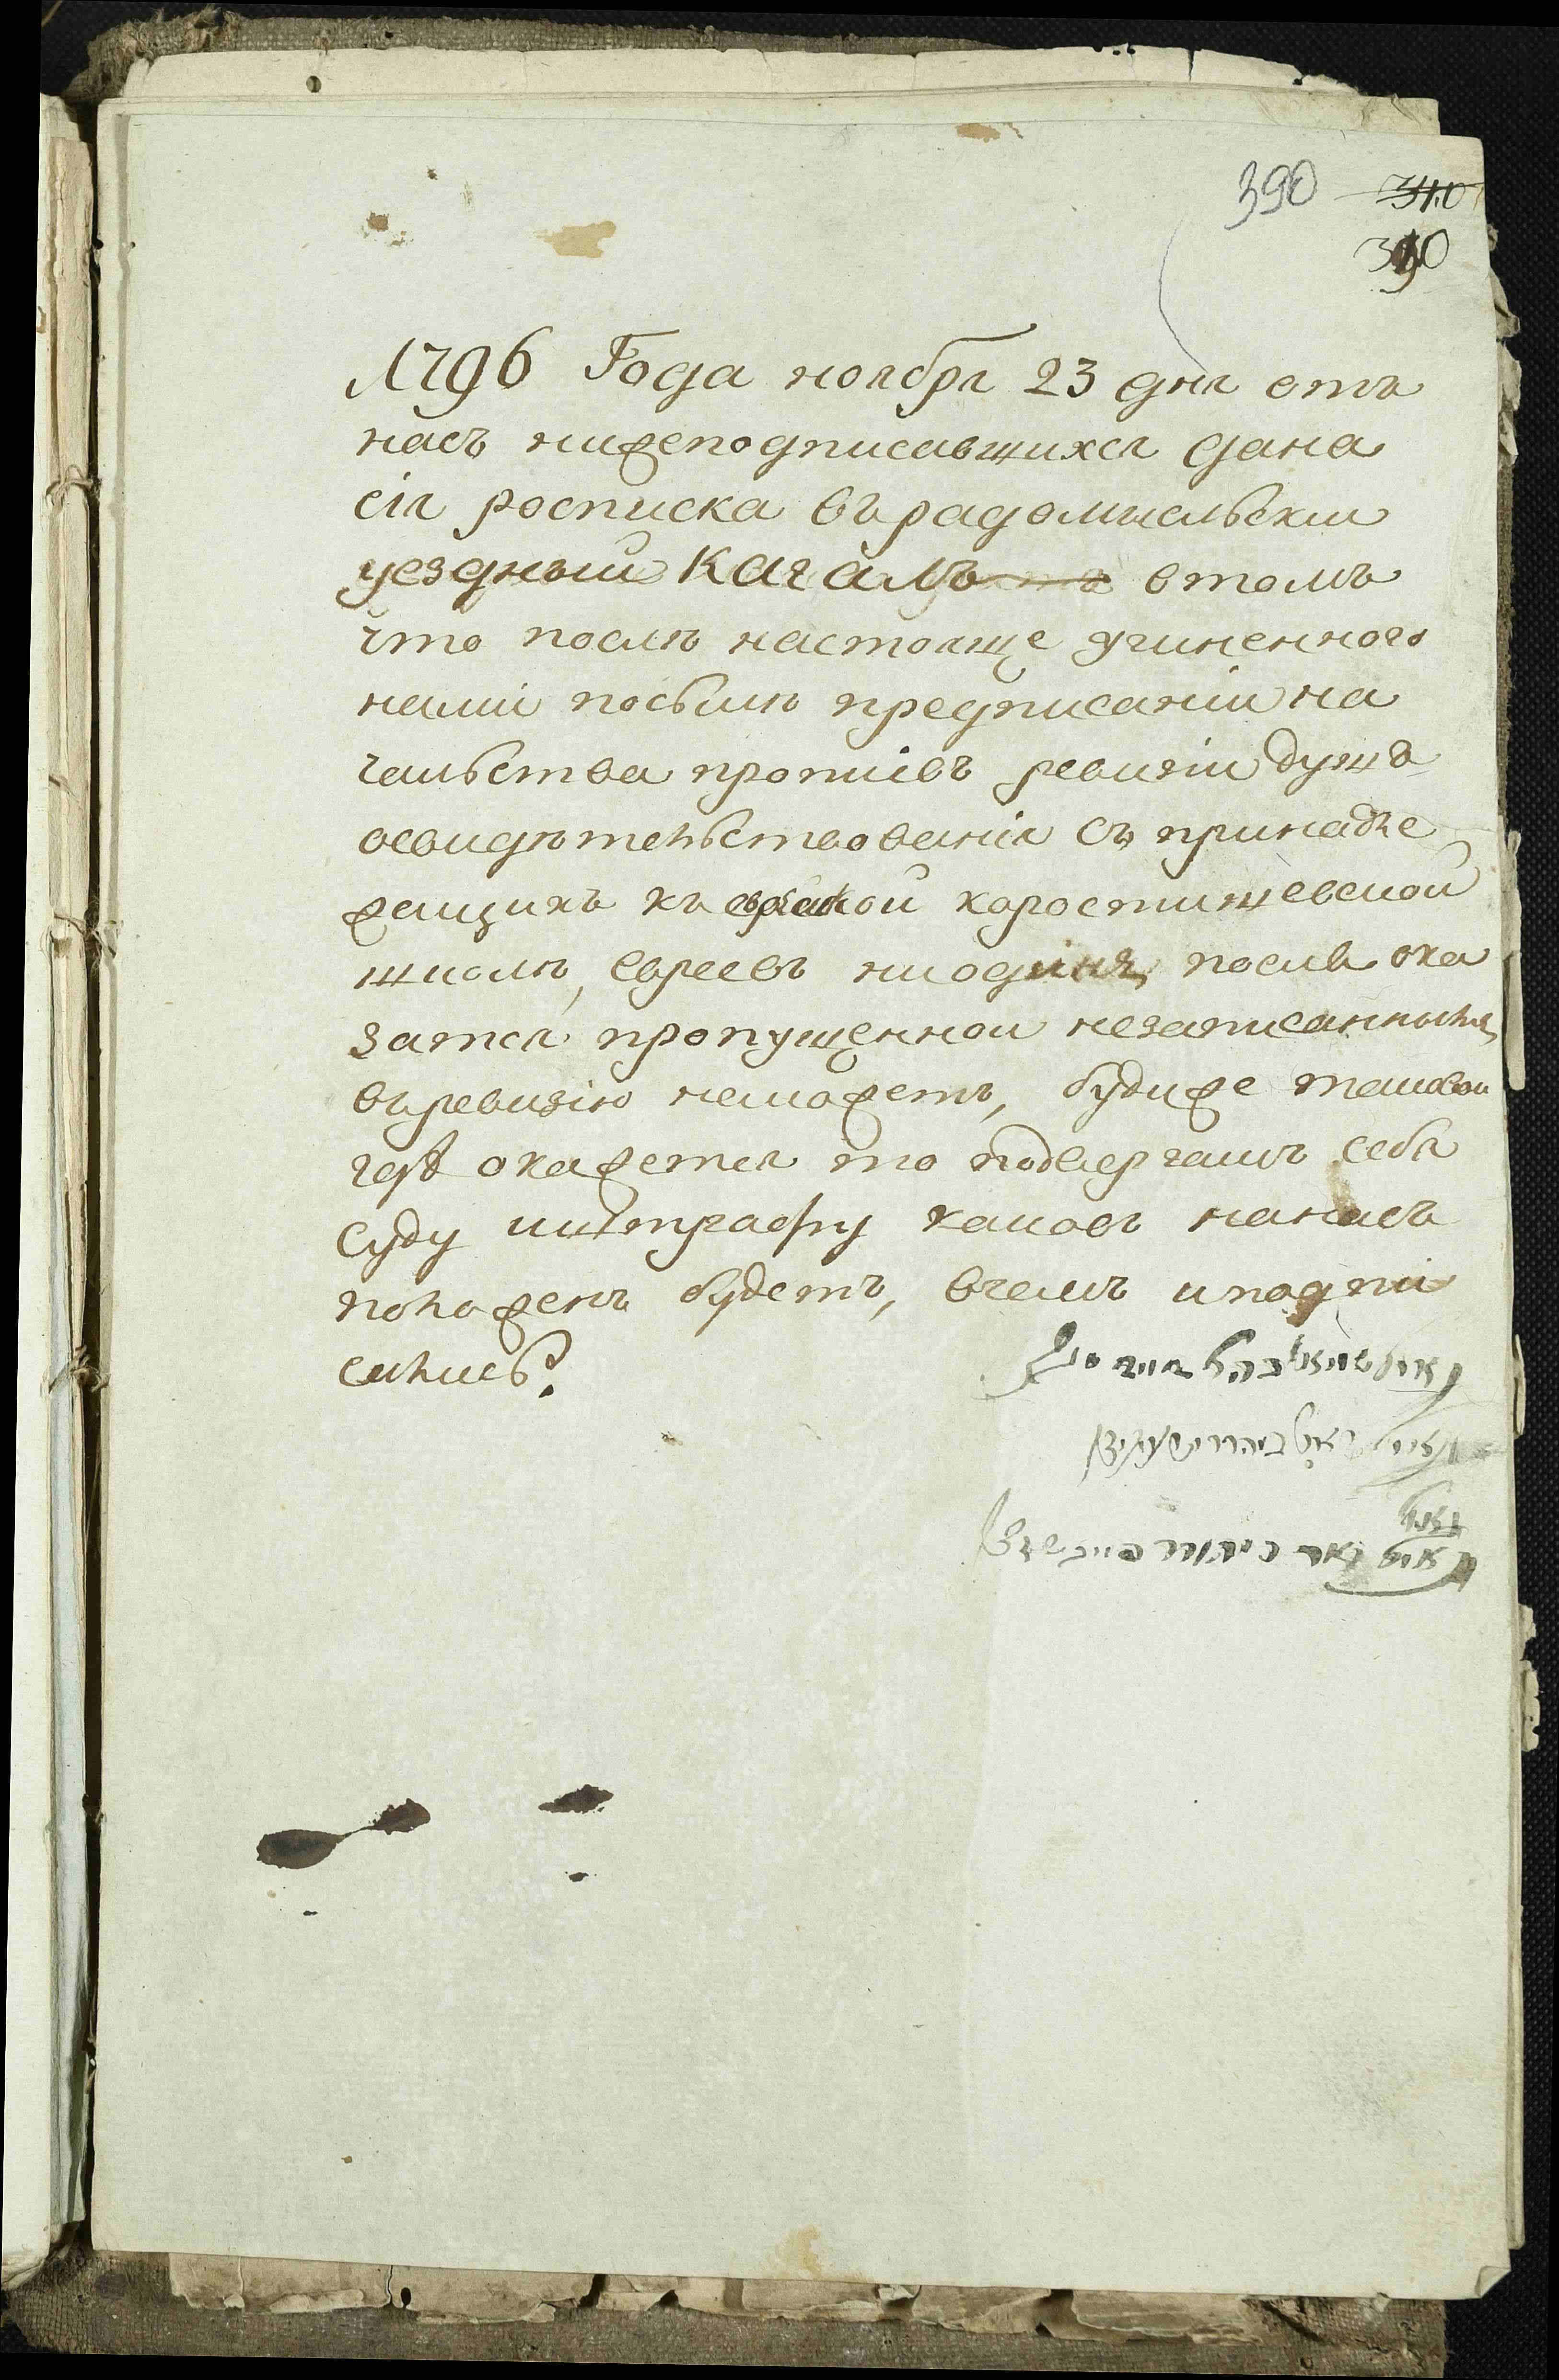 390 340
390
1796 Года ноября 23 дня отъ
насъ нижеподписавшихся дана
сія росписка въ радомысльскіи
уездныи Кагалъ втомъ
что послѣ настояще учиненного
нами посылѣ предписаніи на
чальства противъ ревизіи душъ
освидѣтельствованія съ принадле
жащихъ къ коростишевской
школѣ, евреевъ ниодинъ послѣ ока
затся пропущеннои незаписаннымъ
въревизію неможетъ, будиже таковои
гдѣ окажется то подвергаемъ себя
суду иштрафу каковъ нанасъ
положенъ будетъ, вчемъ иподпи
сались?